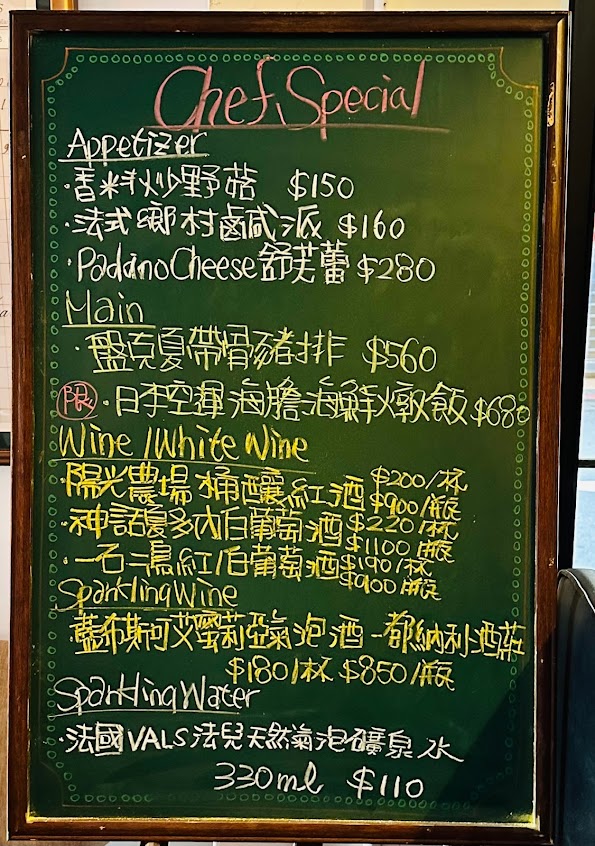 Chef Special
Appetizer
·香料炒野菇 $150
·法式鄉村鹹派 $160
·Padano Cheese 舒芙蕾 $280
Main
·盤克夏帶骨豬排 $560
限 ·日本空運海膽海鮮燉飯 $680
Wine / White Wine
·陽光農場桶釀紅酒 $200/杯 $900/瓶
·神話夏多內白葡萄酒 $220/杯 $1100/瓶
·一石二鳥紅/白葡萄酒 $190/杯 $900/瓶
Sparkling Wine
·藍布斯可艾蜜莉亞氣泡酒-都納利酒莊
$180/杯 $850/瓶
Sparkling Water
·法國VALS法兒天然氣泡礦泉水
330ml $110